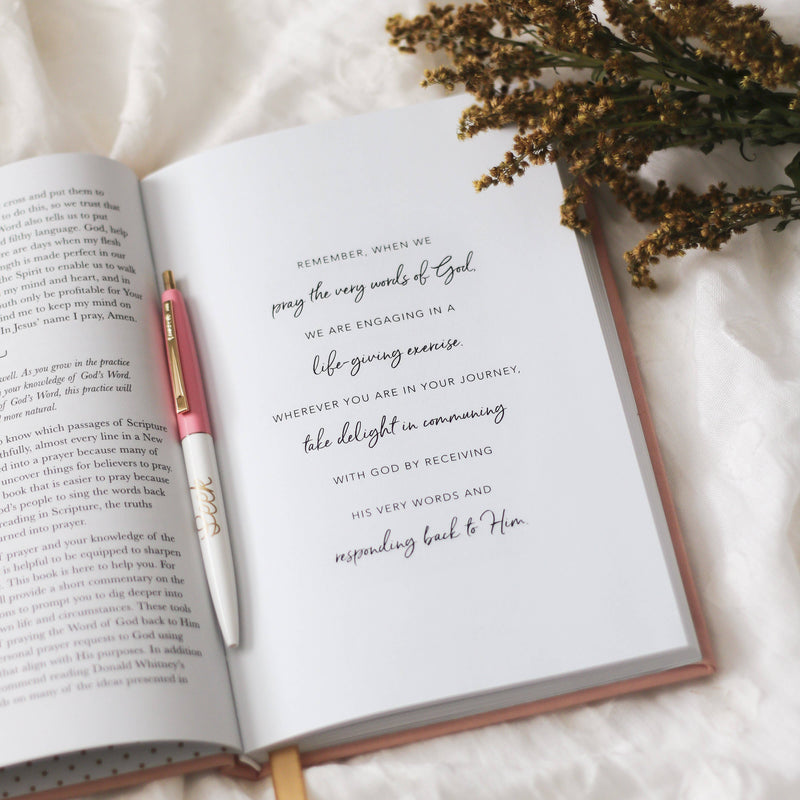 cross and put them to
to do this, so we trust that
Word also tells us to put
d filthy language. God, help
re are days when my flesh
ngth is made perfect in our
the Spirit to enable us to walk
my mind and heart, and in
outh only be profitable for Your
ind me to keep my mind on
In Jesus' name I pray, Amen.
well. As you grow in the practice
your knowledge of God's Word.
of God's Word, this practice will
more natural.
o know which passages of Scripture
thfully, almost every line in a New
ed into a prayer because many of
uncover things for believers to pray.
book that is easier to pray because
od's people to sing the words back
reading in Scripture, the truths
urned into prayer.
f prayer and your knowledge of the
is helpful to be equipped to sharpen
. This book is here to help you. For
ll provide a short commentary on the
ons to prompt you to dig deeper into
wn life and circumstances. These tools
f praying the Word of God back to Him
ersonal prayer requests to God using
that align with His purposes. In addition
commend reading Donald Whitney's
ds on many of the ideas presented in
Seek
REMEMBER, WHEN WE
pray the very words of God,
WE ARE ENGAGING IN A
life-giving exercise.
WHEREVER YOU ARE IN YOUR JOURNEY,
take delight in communing
WITH GOD BY RECEIVING
HIS VERY WORDS AND
responding back to Him.